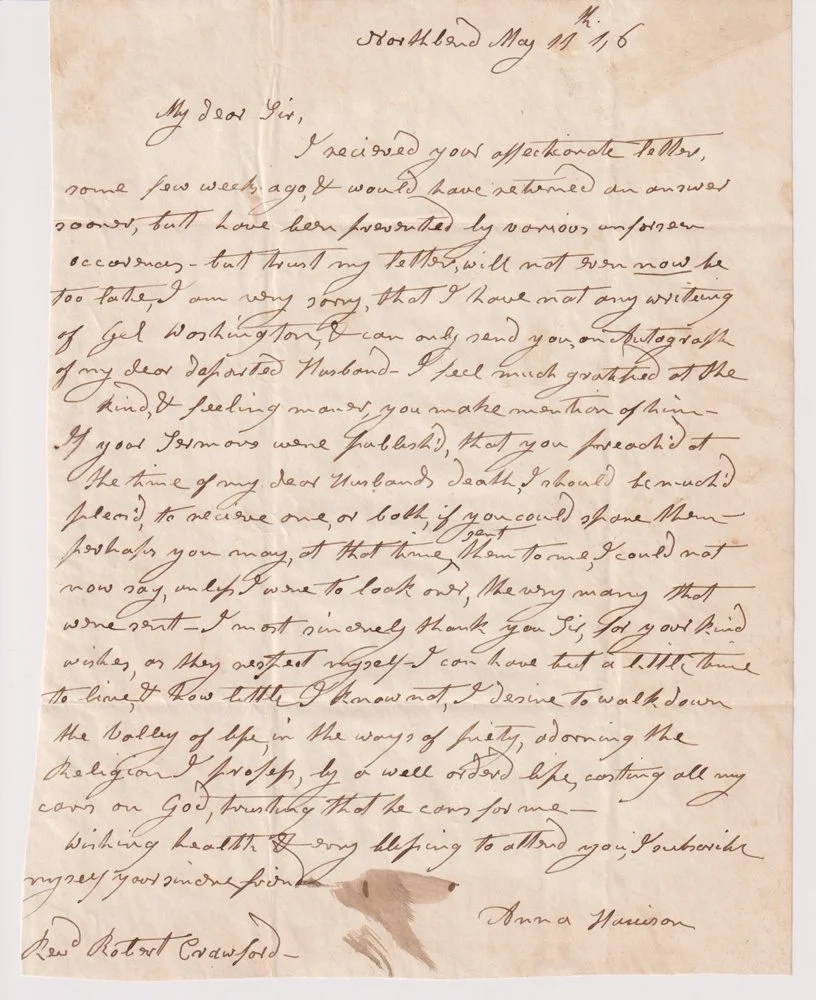 Northbend May 11th. 1,6
My dear Sir,
I recieved your affectionate letter,
some few weeks ago, & would have returned an answer
sooner, but have been prevented by various unforseen
occorences - but trust my letter, will not even now be
too late, I am very sorry, that I have not any writeing
of Gel Washington, & can only send you, an Autograph
of my dear departed Husband - I feel much gratified at the
kind, & feeling maner, you make mention of him -
If your Sermons were publish'd, that you preach'd at
the time of my dear Husbands death, I should be much'd
pleas'd, to recieve one, or both, if you could spare them -
perhaps you may, at that time, sent them to me, I could not
now say, unless I were to look over, the very many that
were sent - I most sincerely thank you Sir, for your kind
wishes, as they respect myself - I can have but a little time
to live, & how little I know not, I desire to walk down
the Valley of life, in the ways of piety, adorning the
Religion I profess, by a well orderd life, casting all my
cares on God, trusting that he cares for me -
Wishing health & every blessing to attend you, I subscribe
myself your sincere friend
Anna Harrison
Revd Robert Crawford -